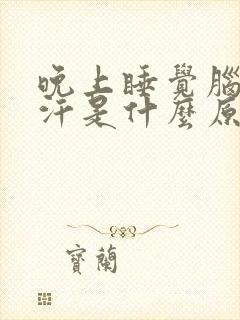 晚上睡覺腦
汗是什麼原
寶蘭